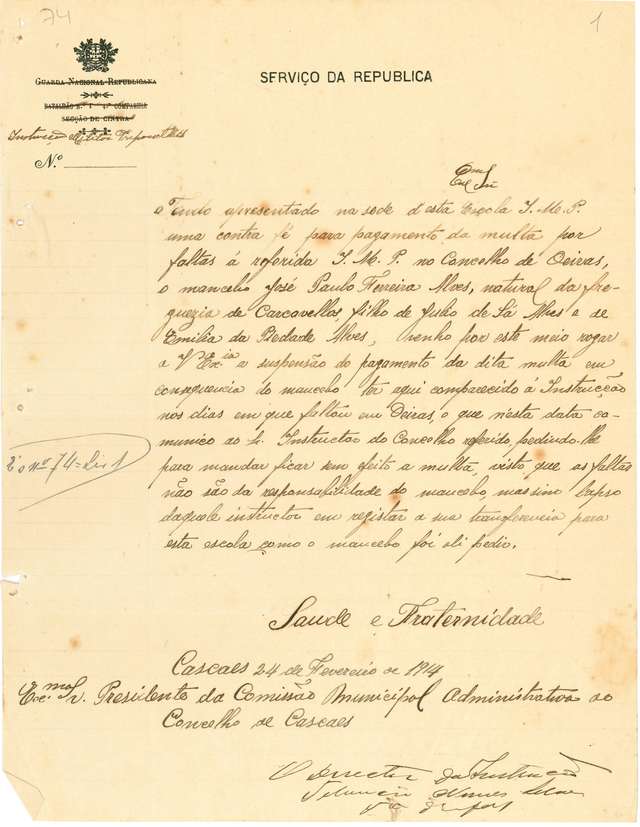 74
1
GUARDA NACIONAL REPUBLICANA
BATALHÃO N.º 1 4ª COMPANHIA
SECÇÃO DE CINTRA
Instrução Militar
N.º
SERVIÇO DA REPUBLICA
Exmº Snr
Tendo apresentado na sede d'esta Escola I. M. P.
uma contra fé para pagamento da multa por
faltas á referida I. M. P. no Concelho de Oeiras,
o mancebo José Paulo Ferreira Alves, natural da fre-
guezia de Carcavellos, filho de Julio de Sá Alves e de
Emilia da Piedade Alves, venho por este meio rogar
a V Ex.cia a suspensão do pagamento da dita multa em
consequencia do mancebo ter aqui comparecido á Instrucção
nos dias em que faltou em Oeiras, o que nesta data co-
munico ao Instructor do Concelho referido, pedindo-lhe
para mandar ficar sem efeito a multa, visto que as faltas
não são da responsabilidade do mancebo, mas sim lapso
daquele instructor em registar a sua transferencia para
esta escola como o mancebo foi ali pedir.
nº 74
Saude e Fraternidade
Cascaes 24 de Fevereiro de 1914
Exc.mo Snr. Presidente da Comissão Municipal Administrativa do
Concelho de Cascaes
O Director da Instrucção
Nunes